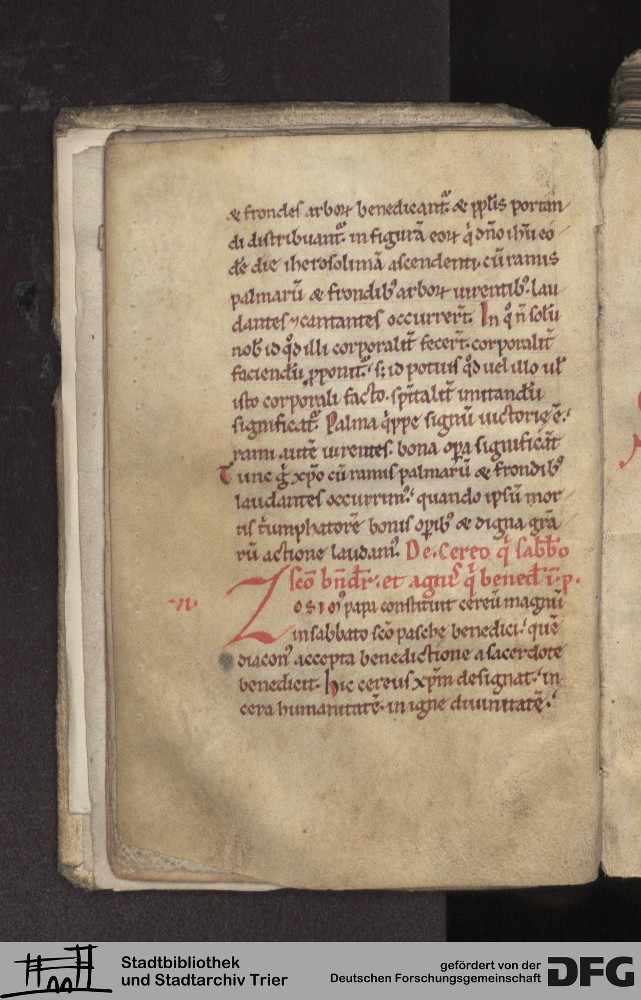 & frondes arboꝝ benedicant̃. & ppl̃is portan
di distribuant̃. in figurã eoꝝ q̇ dño ih̃u eo
dẽ die iherosolimã ascendenti. cũ ramis
palmarũ & frondib; arboꝝ uirentib;. lau
dantes ⁊ cantantes occurrer̃t. In q̊ ñ solũ
nob̃ id q̊d illi corporalit̃ fecer̃t. corporalit̃
faciendũ p̱ponit̃. s; id potius q̊d uel illo ul̃
isto corporali facto. sp̃italit̃ imitandũ
significat̃. Palma q̇ppe signũ uictorię ẽ.
rami autẽ uirentes. bona oꝑa significãt
Tunc g̊ xp̃o cũ ramis palmarũ & frondib;
laudantes occurrim᷒. quando ipsũ mor
tis t̃umphatorẽ bonis oꝑib; & digna gr̃a
rũ actione laudam᷒. De Cereo q̇ sabb̃o
sc̃o bñdr̃. et agnis q̇ bened̃ i. p.
·n· Zosim᷒ papa constituit cereũ magnũ
in sabbato sc̃o pasche benedici. quẽ
diacon᷒ accepta benedictione a sacerdote
benedicit. Hic cereus xp̃m designat. in
cera humanitatẽ. in igne diuinitatẽ.
Stadtbibliothek
und Stadtarchiv Trier
gefördert von der
Deutschen Forschungsgemeinschaft
DFG